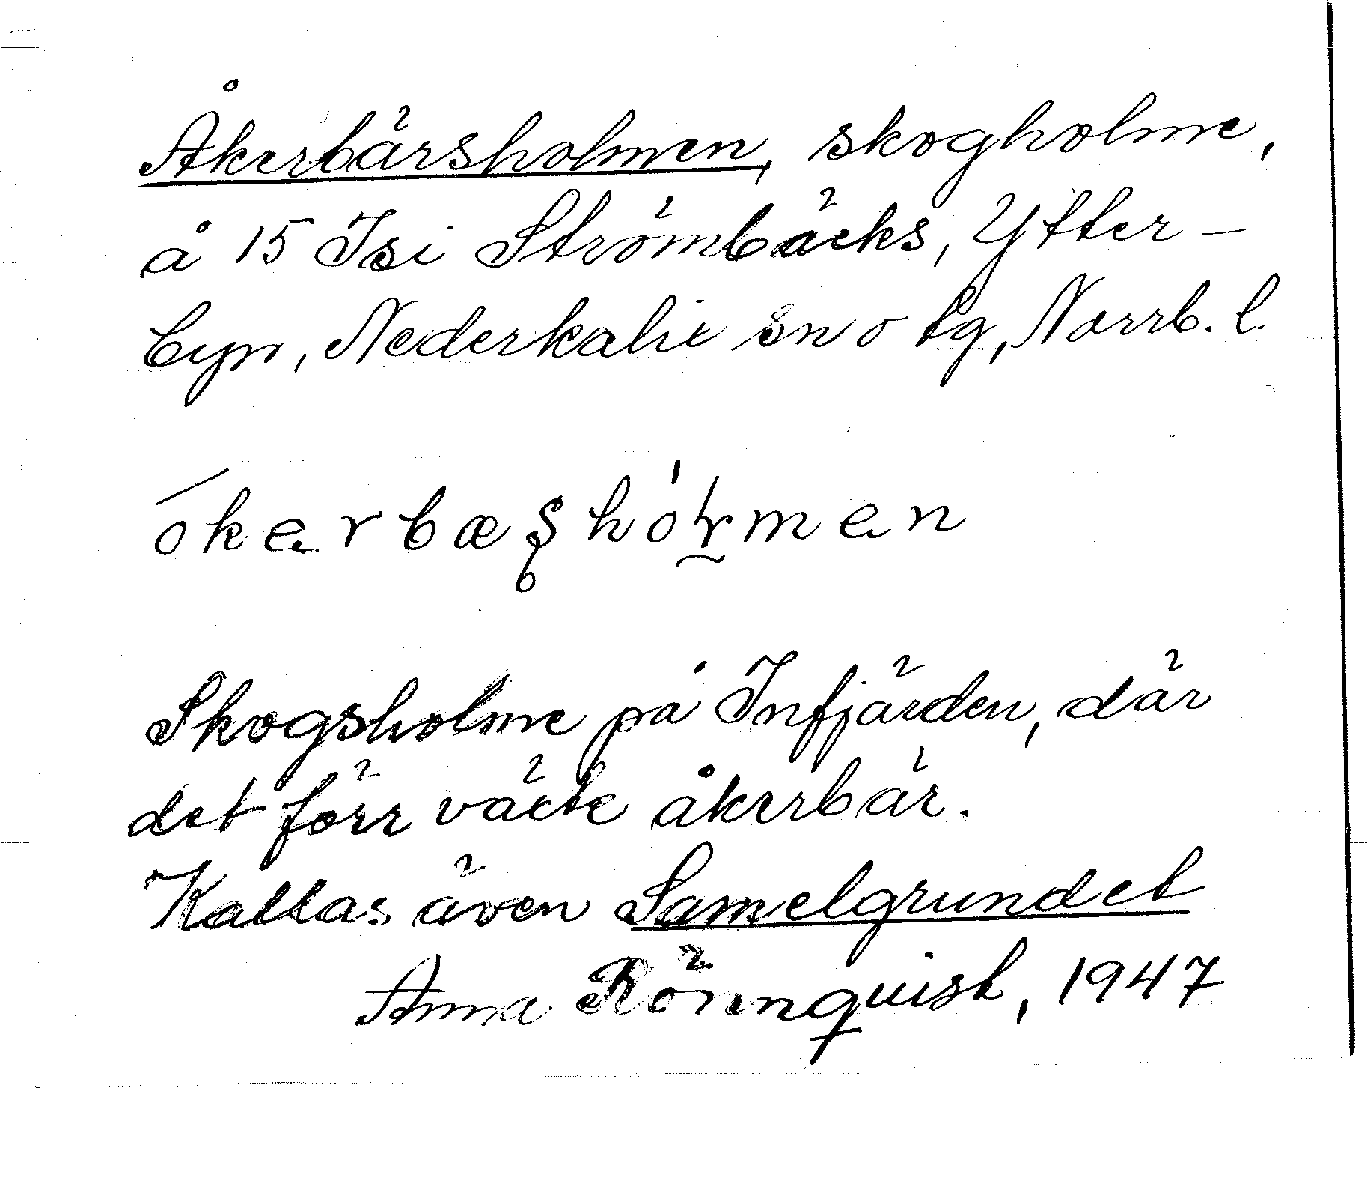 Åkerbärsholmen, skogholme,
å 15 Isi Strömbäcks, Ytter-
byn, Nederkalix sn o tg, Norrb. l.
ókerbæʂhóɽmen
Skogsholme på Infjärden, där
det förr växte åkerbär.
Kallas även Samelgrundet
Anna Rönnquist, 1947